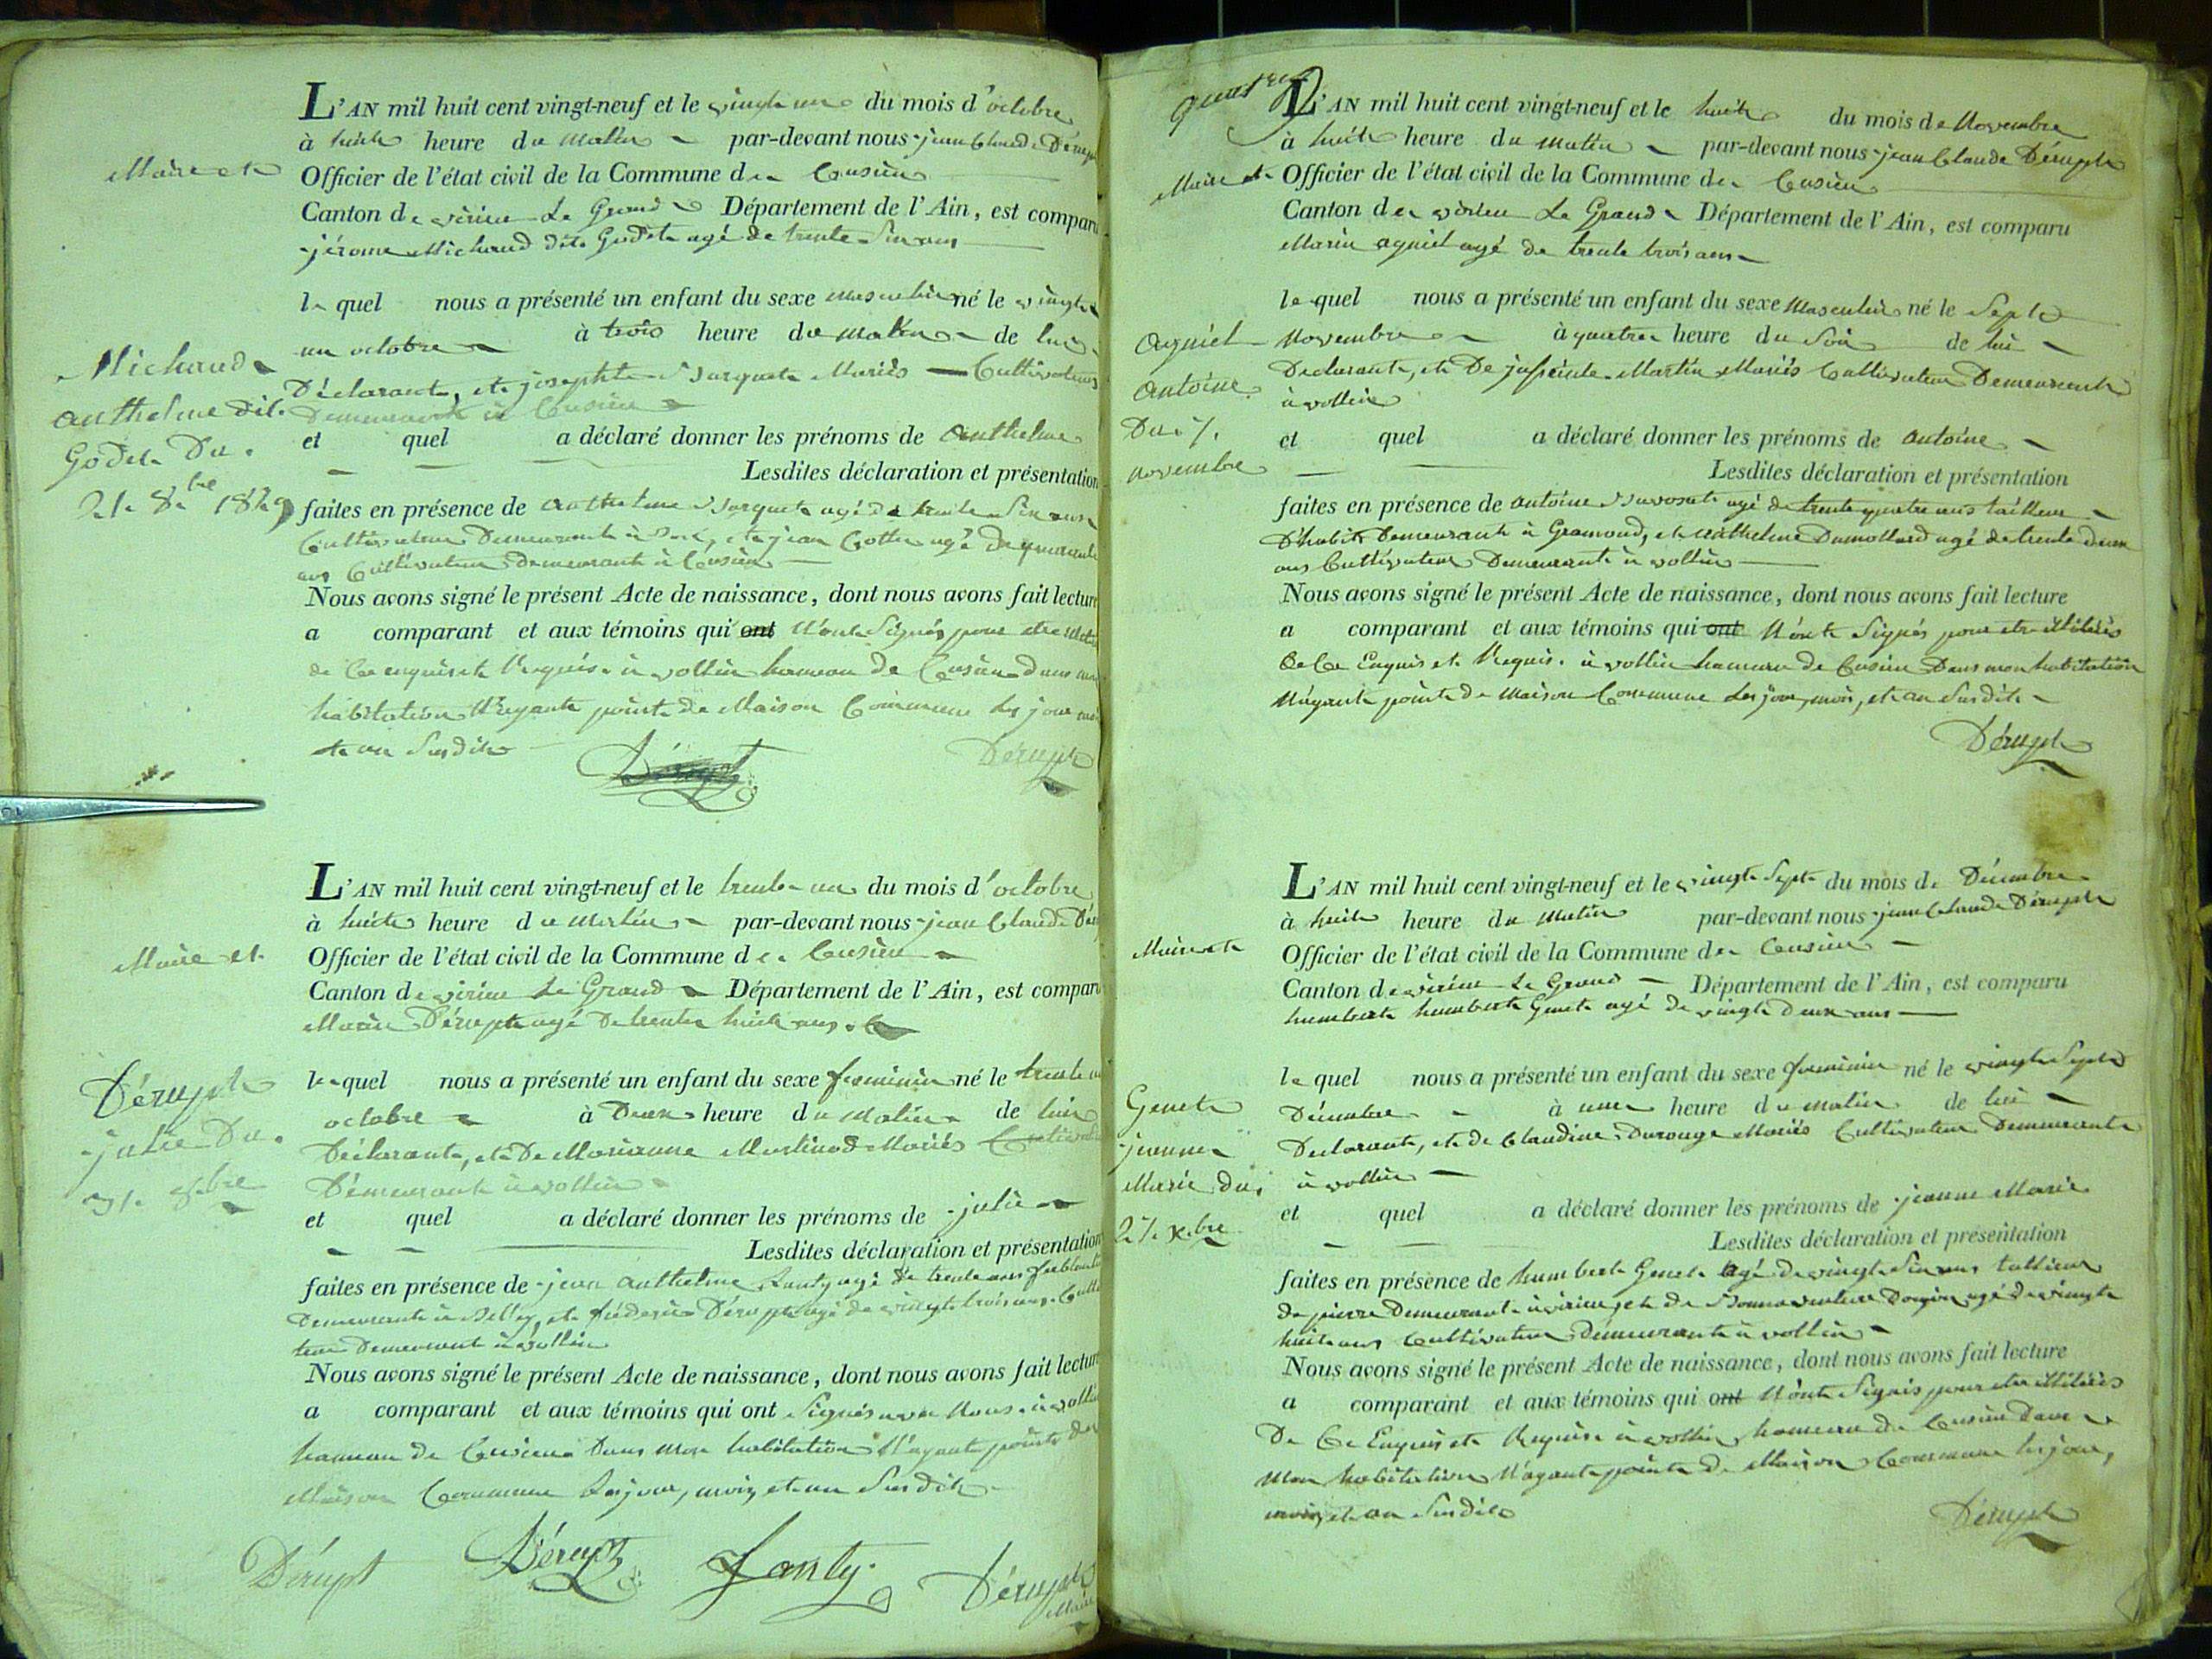 L'AN mil huit cent vingt-neuf et le vingt un du mois d'octobre
à huit heure du matin par-devant nous jean Claude Dérupt
Maire et Officier de l'état civil de la Commune de Ceusieu
Canton de virieu Le Grand Département de l'Ain, est comparu
jérome Michaud dit Godet agé de trente six ans
le quel nous a présenté un enfant du sexe masculin né le vingt
un octobre à trois heure du matin de lui
Déclarant, et josephte Marqueta Mariés Cultivateurs
Demeurant à Ceusieu
Michaud
anthelme dit
Godet Du
21 8bre 1829
et quel a déclaré donner les prénoms de anthelme
Lesdites déclaration et présentation
faites en présence de anthelme agé de trente six ans
Cultivateur Demeurant à et jean agé de quarante
ans Cultivateur demeurant à Ceusieu
Nous avons signé le présent Acte de naissance, dont nous avons fait lecture
a comparant et aux témoins qui ont N'ont Signés pour etre
de Ce enquis et Requis. à vollien hameau de Ceusieu dans mon
habitation N'ayant point de Maison Commune Les jour mois
et an Susdit
Dérupt
Dérupt
L'AN mil huit cent vingt-neuf et le trente un du mois d'octobre
à huit heure du matin par-devant nous jean Claude Dérupt
Maire et Officier de l'état civil de la Commune de Ceusieu
Canton de virieu Le Grand Département de l'Ain, est comparu
Marin Dérupt agé de trente huit ans
le quel nous a présenté un enfant du sexe feminin né le trente un
octobre à Deux heure du matin de lui
Déclarant, et De Marianne Martinod Mariés Cultivateurs
Demeurant à vollien
Dérupt
julie Du
31 8bre
et quel a déclaré donner les prénoms de julie
Lesdites déclaration et présentation
faites en présence de jean anthelme Janty agé de trente ans ferblantier
Demeurant à Belley, et fréderic Dérupt agé de vingt trois ans Cultiva
teur Demeurant à vollien
Nous avons signé le présent Acte de naissance, dont nous avons fait lecture
a comparant et aux témoins qui ont Signés avec Nous. à vollien
hameau de Ceusieu Dans mon habitation N'ayant point de
Maison Commune Les jour, mois, et an Susdit
Dérupt Dérupt Janty Dérupt
Maire
L'AN mil huit cent vingt-neuf et le huit du mois de Novembre
à huit heure du matin par-devant nous jean Claude Dérupt
Maire et Officier de l'état civil de la Commune de Ceusieu
Canton de virieu Le Grand Département de l'Ain, est comparu
Marin agniel agé de trente trois ans
le quel nous a présenté un enfant du sexe Masculin né le Sept
Novembre à quatre heure du Soir de lui
Déclarant, et De Martin Mariés Cultivateur Demeurant
à vollien
agniel
antoine
Du 7
novembre
et quel a déclaré donner les prénoms de antoine
Lesdites déclaration et présentation
faites en présence de antoine agé de trente quatre ans tailleur
D'habit Demeurant à Gramond, et anthelme Dumollard agé de trente deux
ans Cultivateur Demeurant à vollien
Nous avons signé le présent Acte de naissance, dont nous avons fait lecture
a comparant et aux témoins qui ont N'ont Signés pour etre illitérés
de Ce Enquis et Requis. à vollien hameau de Ceusieu Dans mon habitation
N'ayant point de Maison Commune Les jour, mois, et an Susdit
Dérupt
L'AN mil huit cent vingt-neuf et le vingt Sept du mois de Décembre
à huit heure du Matin par-devant nous jean Claude Dérupt
Maire et Officier de l'état civil de la Commune de Ceusieu
Canton de virieu Le Grand Département de l'Ain, est comparu
humbert humbert Genet agé de vingt deux ans
le quel nous a présenté un enfant du sexe feminin né le vingt Sept
Décembre à une heure du matin de lui
Déclarant, et de Claudine Mariés Cultivateur Demeurant
à vollien
Genet
jeanne
Marie du
27 xbre
et quel a déclaré donner les prénoms de jeanne Marie
Lesdites déclaration et présentation
faites en présence de humbert Genet agé de vingt Six ans tallieur
de pierre Demeurant à virieu, et de Bonnaventure agé de vingt
huit ans Cultivateur Demeurant à vollien
Nous avons signé le présent Acte de naissance, dont nous avons fait lecture
a comparant et aux témoins qui ont N'ont Signés pour etre illitérés
De Ce Enquis et Requis à vollien hameau de Ceusieu Dans
Mon habitation N'ayant point de Maison Commune Les jour,
mois, et an Susdit
Dérupt